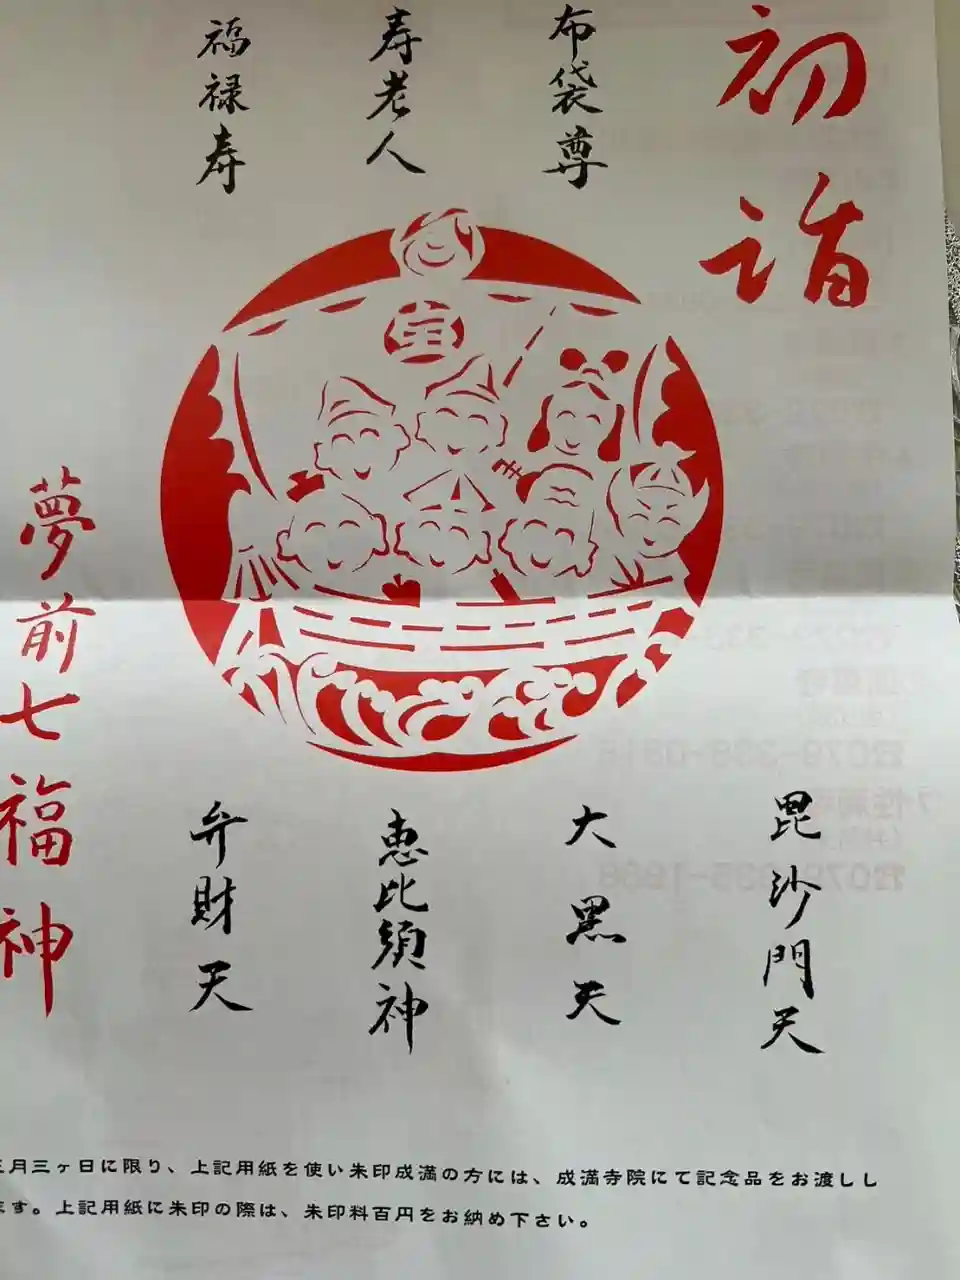 初詣
布袋尊
寿老人
福禄寿
毘沙門天
大黒天
恵比須神
弁財天
夢前七福神
月三ヶ日に限り、上記用紙を使い朱印成満の方には、成満寺院にて記念品をお渡しし
ます。上記用紙に朱印の際は、朱印料百円をお納め下さい。